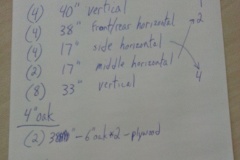 (4) 40" vertical
(4) 38" front/rear horizontal
2
(4) 17" side horizontal
(2) 17" middle horizontal
4
(8) 33" vertical
4" oak
(2) - 6 oak - plywood